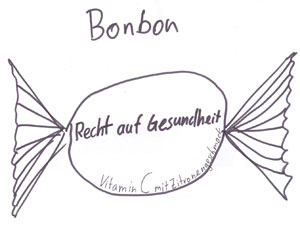 Bonbon
Recht auf Gesundheit
Vitamin C mit Zitronengeschmack